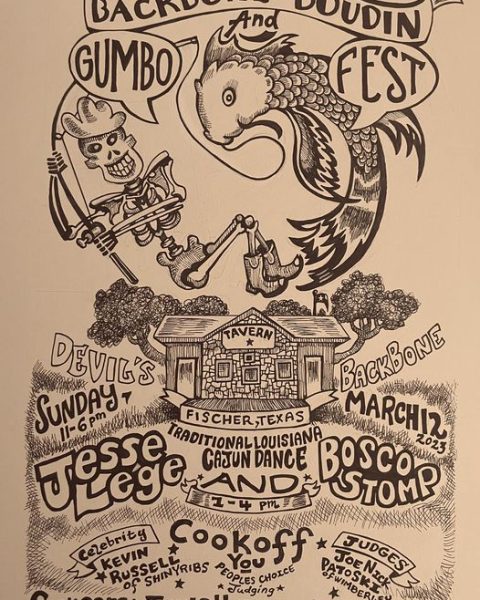 BACKBONE BOUDIN
And
GUMBO
FEST
TAVERN
DEVIL'S
BACKBONE
FISCHER, TEXAS
SUNDAY
11-6 pm
MARCH 12
2023
TRADITIONAL LOUISIANA
CAJUN DANCE
Jesse
Lége
AND
BOSCO
STOMP
1-4 PM
Cookoff
Celebrity
KEVIN
RUSSELL
OF SHINYRIBS
YOU
PEOPLES CHOICE
Judging
JUDGES
JOE NICK
PATOSKI
OF WIMBERLEY